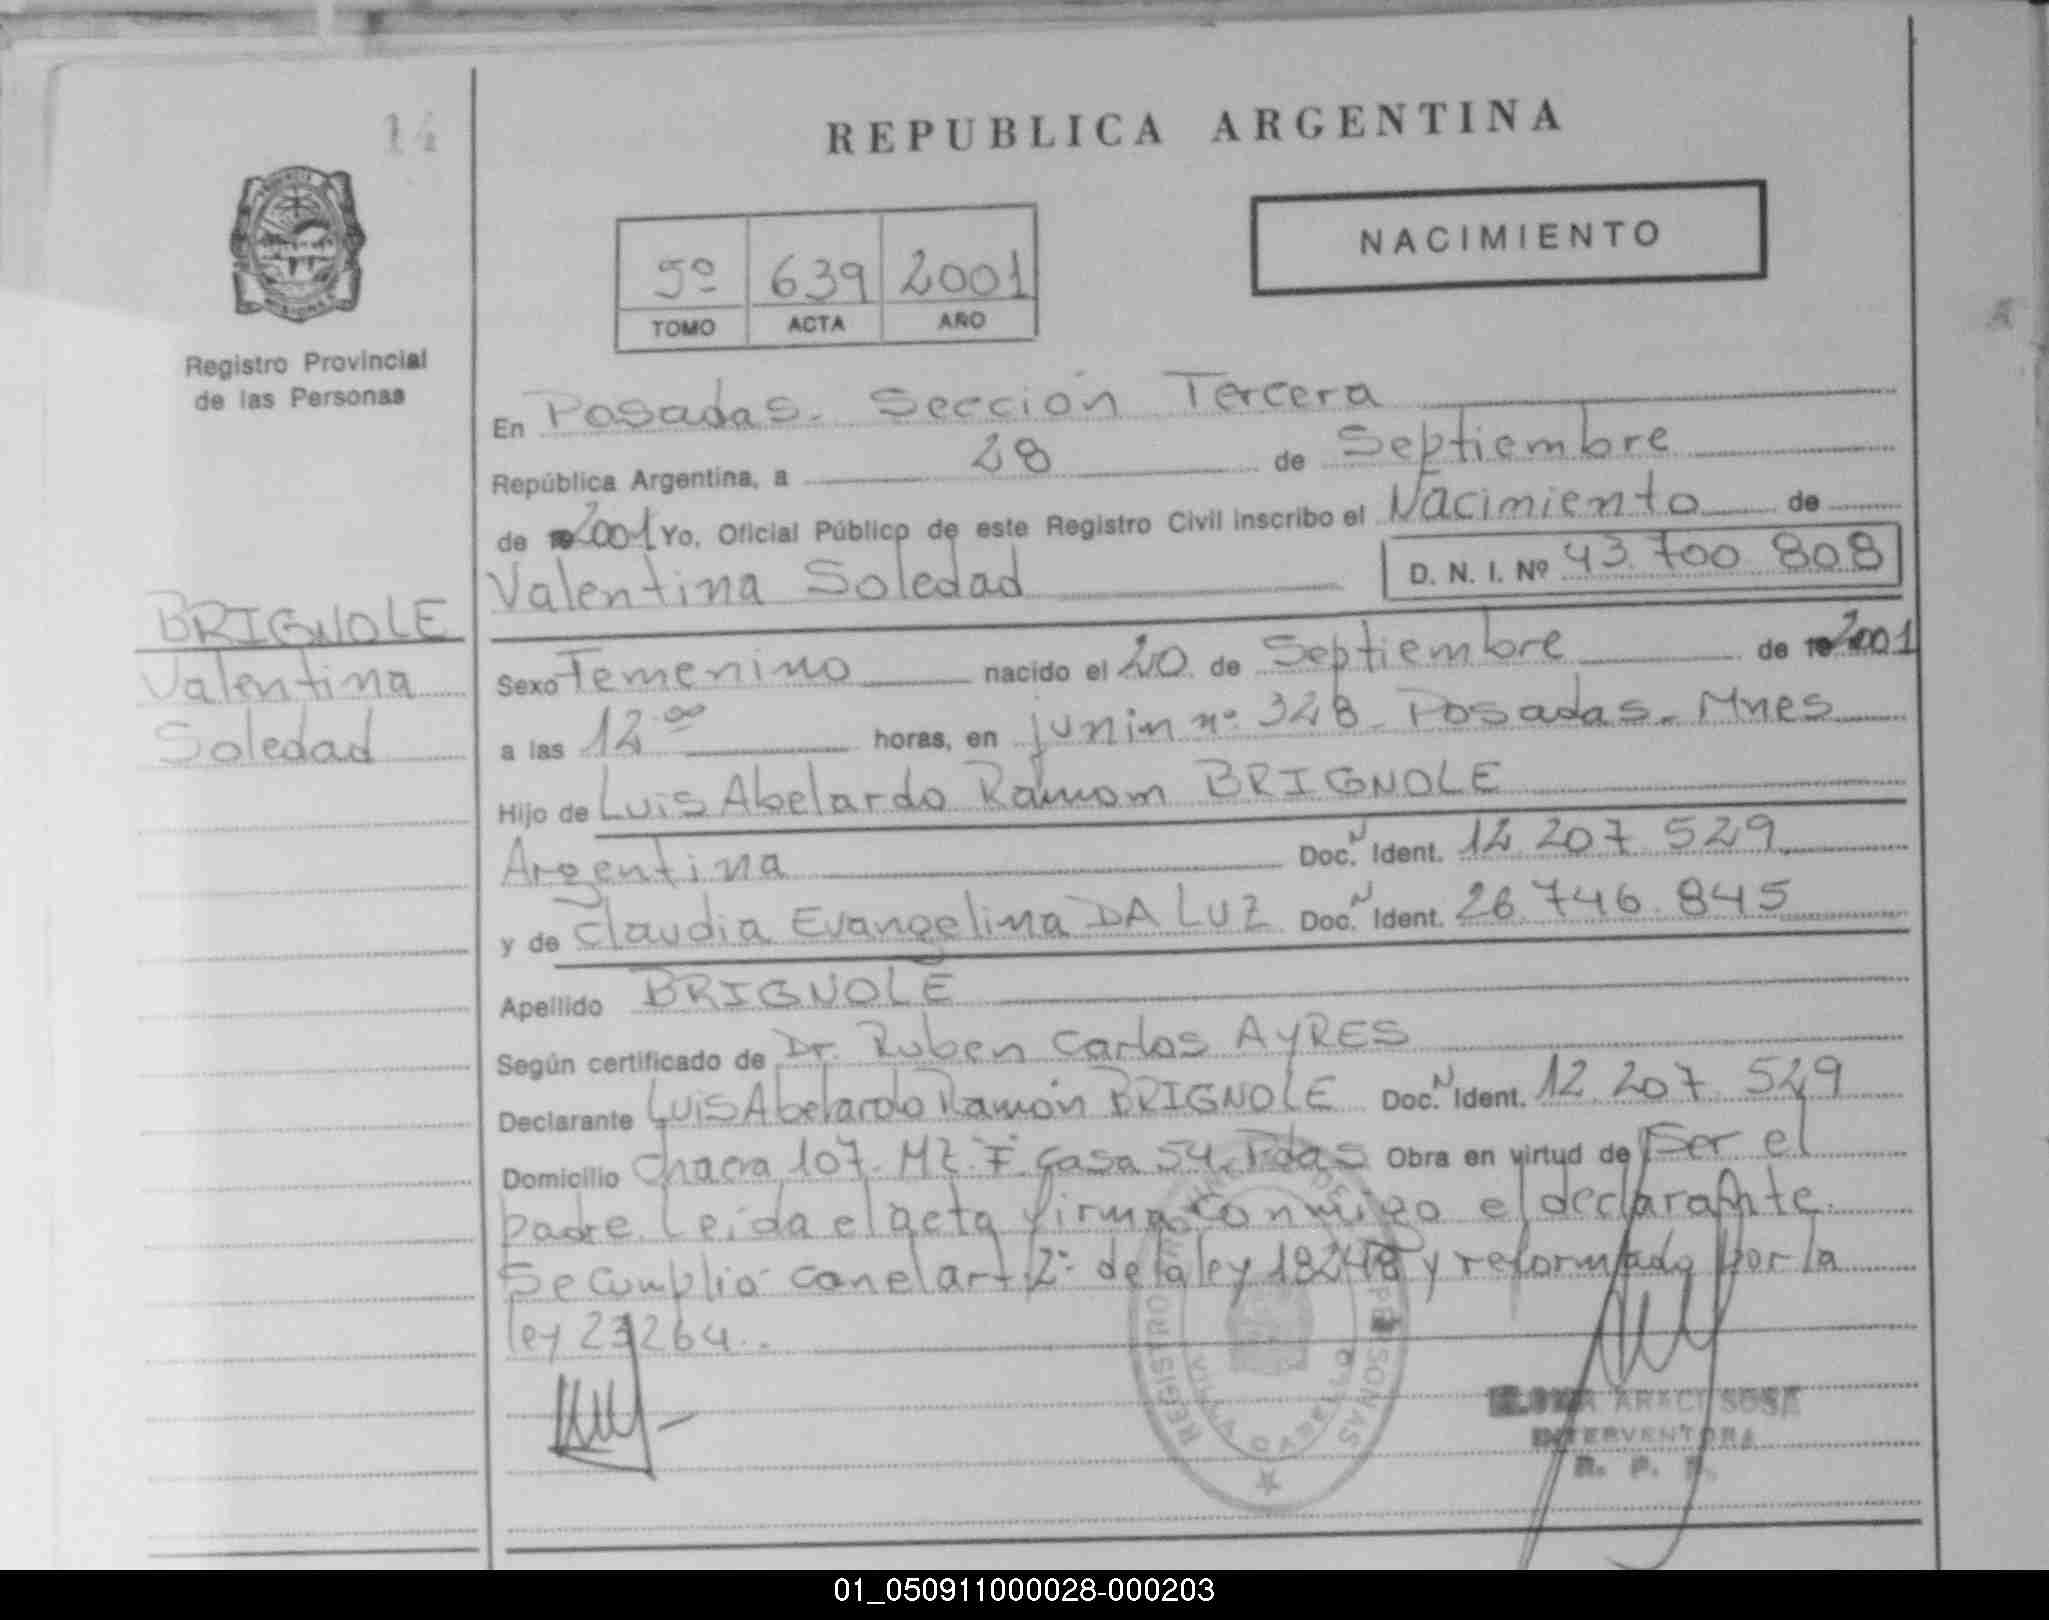 14
REPUBLICA ARGENTINA
NACIMIENTO
5º 639 2001
TOMO ACTA AÑO
Registro Provincial
de las Personas
En Posadas. Sección Tercera
República Argentina, a 28 de Septiembre
de 2001 Yo, Oficial Público de este Registro Civil inscribo el Nacimiento de
Valentina Soledad D. N. I. Nº 43.700 808
BRIGNOLE
Valentina
Soledad
Sexo Femenino nacido el 20 de Septiembre de 2001
a las 12.00 horas, en junin nº 328. Posadas. Mnes
Hijo de Luis Abelardo Ramom BRIGNOLE
Argentina Doc. N Ident. 12 207 529
y de Claudia Evangelina DA LUZ Doc. N Ident. 26.746.845
Apellido BRIGNOLE
Según certificado de Dr. Ruben Carlos AYRES
Declarante Luis Abelardo Ramón BRIGNOLE Doc. N Ident. 12.207.529
Domicilio Chacra 107. MZ. F. Casa 54. Pdas Obra en virtud de Ser el
padre. Leida el acta firma conmigo el declarante.
Se cumplio con el art 2º de la ley 18248 y reformado por la
ley 23264.
REGISTRO PERSONAS
VILLA CABELLO
ARACI SOSA
INTERVENTORA
R. P. P.
01_050911000028-000203